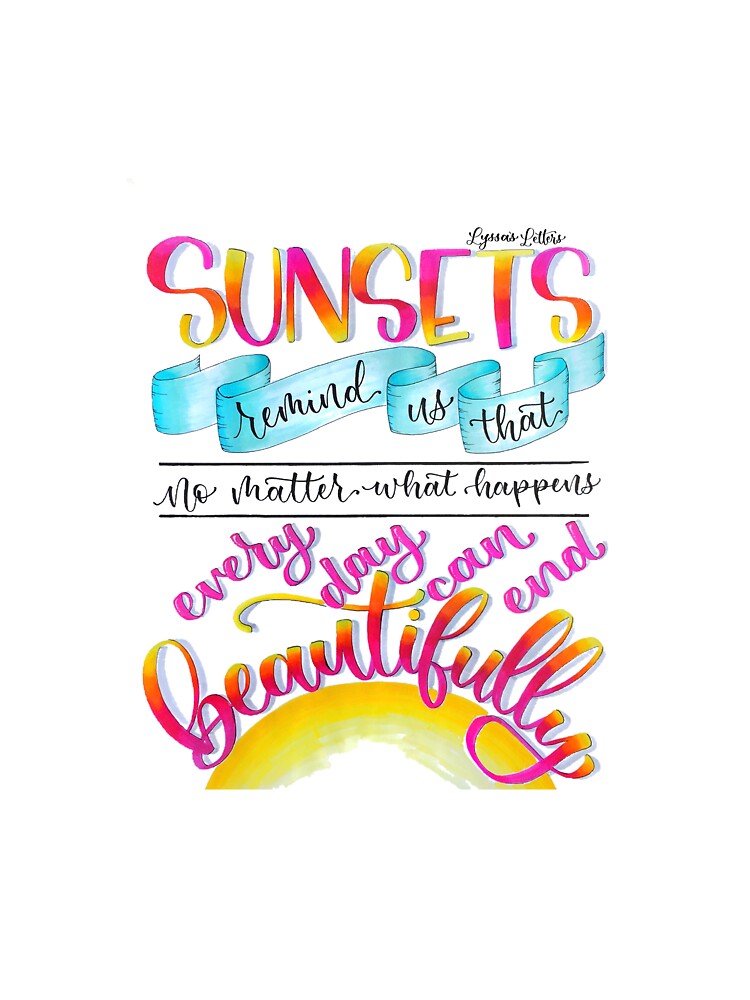 Lyssa's Letters
SUNSETS
remind us that
no matter what happens
every day can end
beautifully